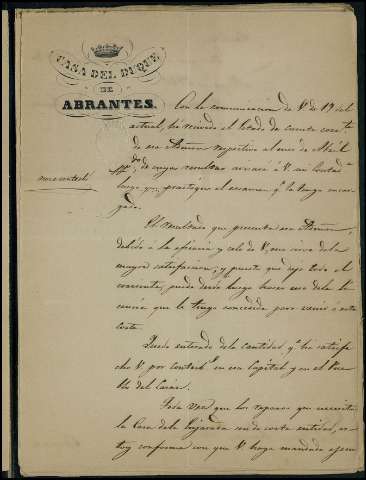 CASA DEL DUQUE
DE
ABRANTES.
Con la comunicacion de V. de 19 del
actual, he recivido el Estado de cuenta corr.te
de esa Admon respectivo al mes de Abril
de cuyas resultas avisará á V. mi Contad.a
luego que practique el examen q.e la tengo encar-
gado.
El resultado que presenta esa Admon,
debido á la eficacia y celo de V., me sirve de la
mayor satisfaccion; y puesto que dejó todo al
corriente, puede desde luego hacer uso de la li-
cencia que le tengo concedida para venir á esta
corte.
Quedo enterado de la cantidad q.e ha satisfe-
cho V. por contrib.n en esa Capital y en el Pue-
blo del Casar.
Toda vez que los reparos que necesita
la Casa de la Enjarada son de corta entidad, es-
toy conforme con que V. haya mandado ejecu